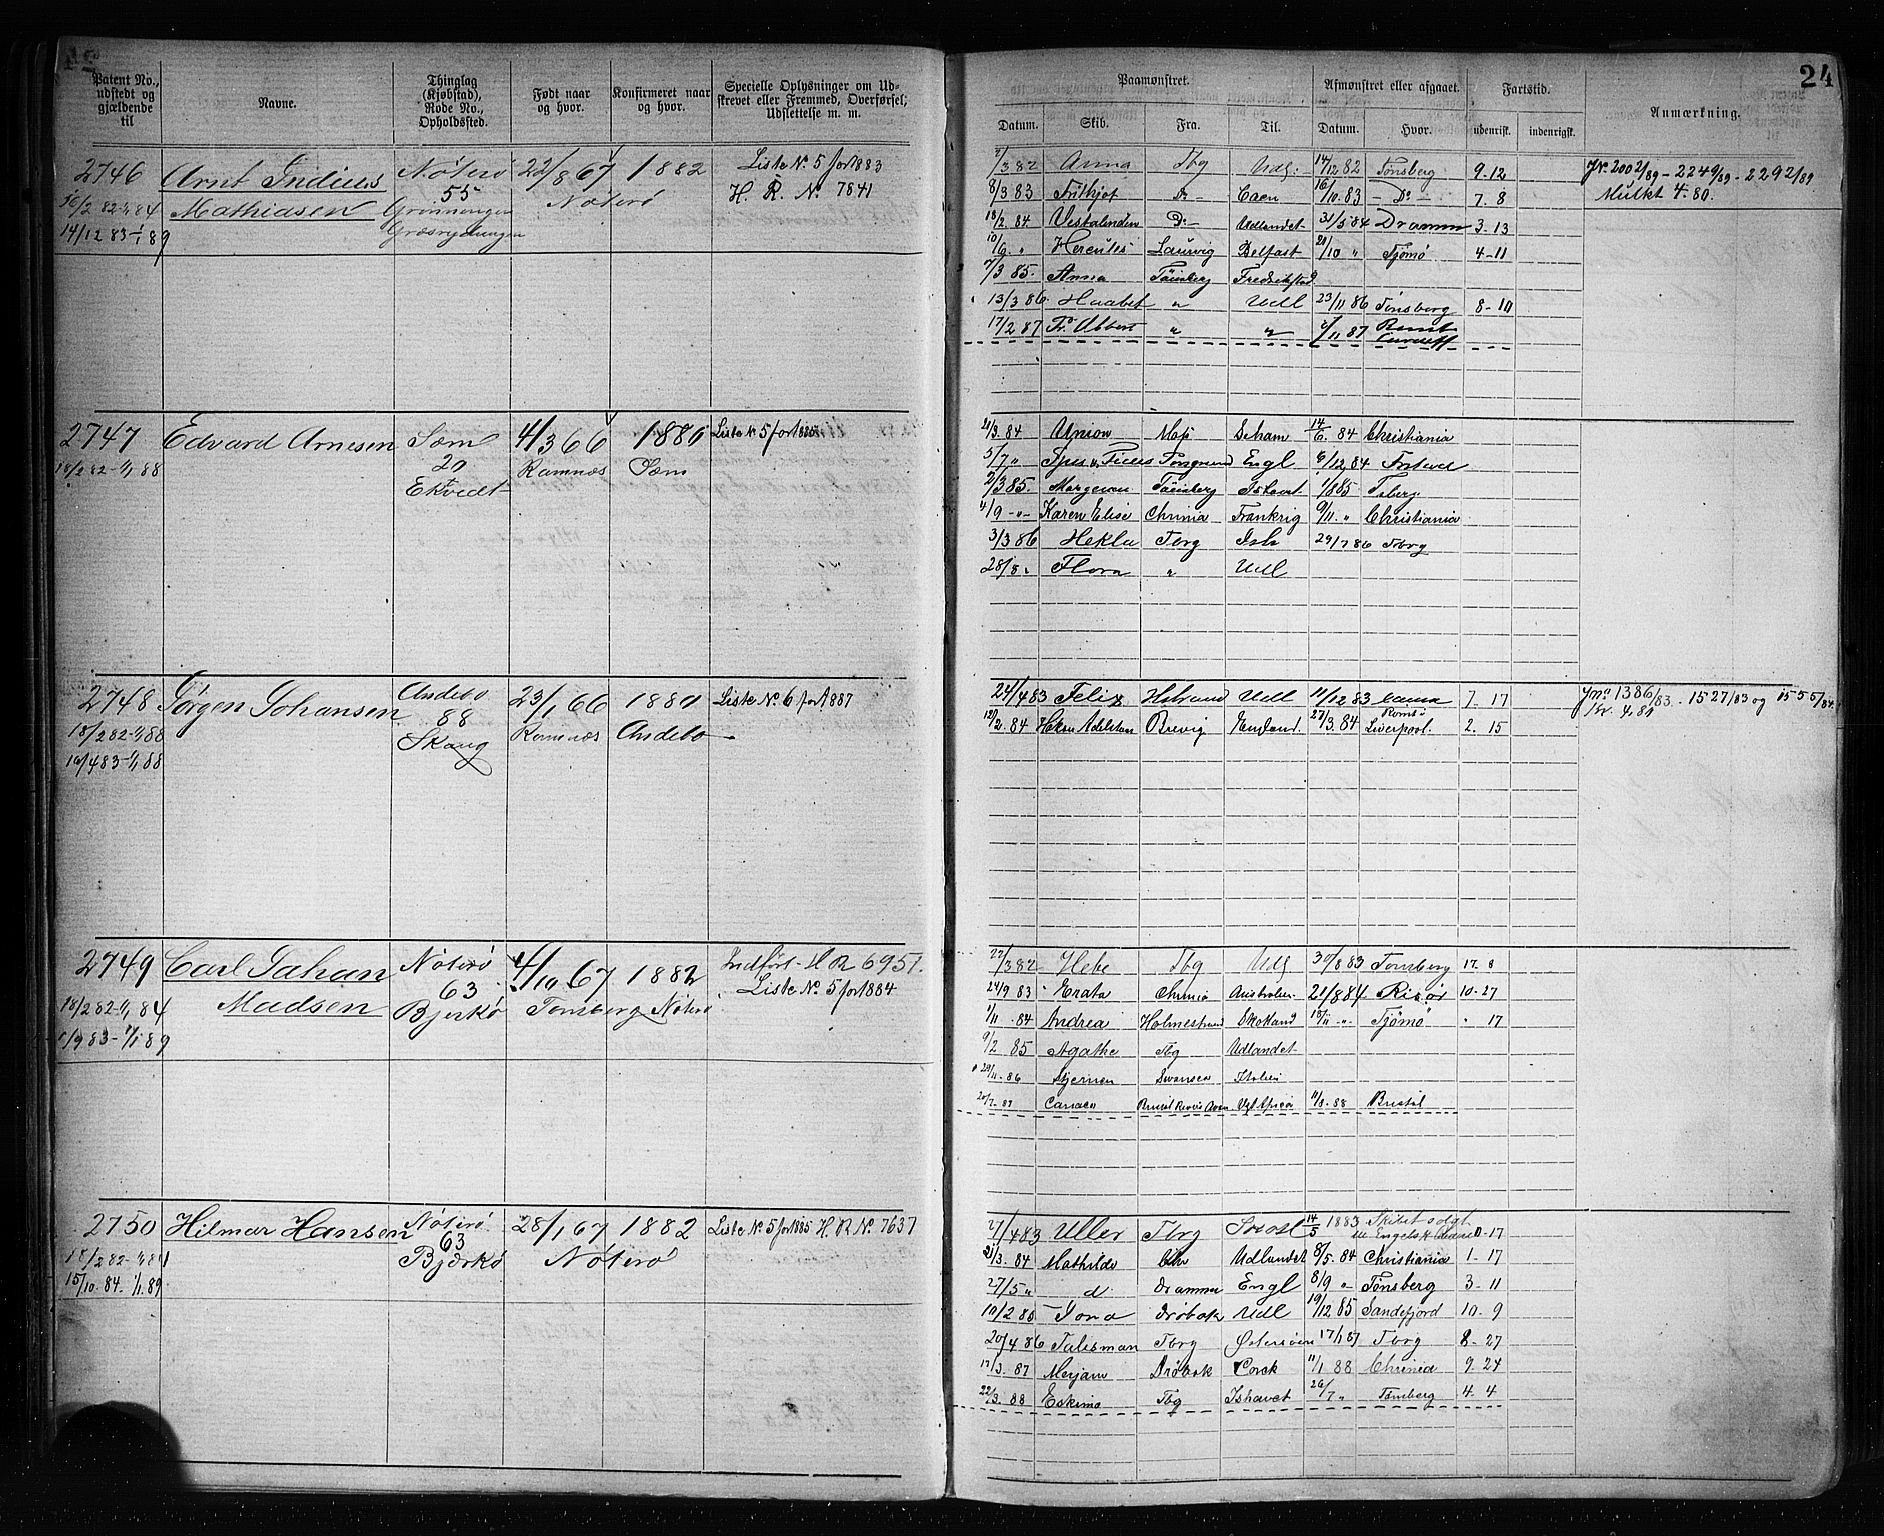 24
Patent No., udstedt og gjældende til
Navne.
Thinglag (Kjøbstad), Rode No., Opholdssted.
Født naar og hvor.
Konfirmeret naar og hvor.
Specielle Oplysninger om Udskrevet eller Fremmed, Overførsel, Udslettelse m. m.
Paamønstret.
Afmønstret eller afgaaet.
Fartstid.
Anmærkning.
Datum. Skib. Fra. Til. Datum. Hvor. udenrigsk. indenrigsk.
2746 Arnt Indius Nøterø 22/8 67 1882 Liste No. 5 for 1883
Mathiasen 55 Nøterø H. R. No. 7841
14/12 83-1/1 89
3 82 Anna Tbg Udl: 14/12 82 Tønsberg 9-12 Jr. 2002/89 - 2249/89 - 2292/89
8/3 83 Frithjof Do - Caen 16/10 83 - Do - 7. 8 Mulkt 4-80.
18/2. 84 Vestalinden D: - Udlandet 31/5 84 Dramm 3-13
10/9. " Hercules Laurvig Belfast 28/10 " Tjømø 4-11
7/3 85. Anna Tønsberg Fredrikstad
13/3 86. Haabet " Udl 23/11 86 Tønsberg 8-10
17/2 87 " " 11 87
2747 Edvard Arnesen Sæm 4/3 66 1880 Liste No. 5 for 188
18/2 82-1/1 88 20 Ramnæs Sæm
Ekvedt
3. 84 Union Moss 14/6. 84 Christiania
5/7 " Engl 6/12, 84
3 85. Tønsberg Ishavet 1/8 85 Tsberg
4/9 - " - Karen Elise Chrnia Frankrig 9/11. " Christiania
3/3 86 Hekla Tbrg Ish 29/7 86 Tbrg
28/8 " Flora " Udl
2748 Jørgen Johansen Andebo 23/1 66 1880 Liste No. 6 for 1887
18/2 82-1/1 88 88 Ramnæs Andebo
19/4 83-1/1 88 Skaug
24/4 83 Felix Holmestrand Udl 11/12 83 7. 17 Jno 1386/83. 1527/83 og 1555/84.
12/2. 84 Hakon Adelsten Brevig England. 27/3. 84 Liverpool. 2. 15
2749 Carl Johan Nøterø 4/10 67 1882 Indført H R 6951.
Madsen 63 Tønsberg Nøterø Liste No. 5 for 1884
18/2 82-1/1 84 Bjerkø
9 83-1/1 89
22/3 82 Hebe Tbg Udl 30/8 83 Tønsberg 17. 8
24/9 83 Erato Chrnia Australien. 21/8 84 Risør 10-27
1/11 84 Andrea Holmestrand Skotland 18/11 - " - Tjømø " 17
9/2 85 Agathe Tbg Udlandet
29/11. 86 Stjernen Swansea Italien
20/7. 87 Bristol 11/8. 88 Bristol
2750 Hilmar Hansen Nøterø 28/1 67 1882 Liste No. 5 for 1885 H. R No. 7637
18/2 82-1/1 84 63 Nøterø
15/10. 84. 1/1. 89 Bjerkø
27/4 83 Uller Tbrg 14/5 1883 Skibet solgt - 17
21/3. 84 Mathilde Udlandet 8/5. 84 Christiania 1. 17
27/5 " d Dramm Engl 8/9 " Tønsberg 3-11
10/2 85 Iona Drøbak Udl 19/12 85 Sandefjord 10. 9
20/4 86 Talisman Tbrg Østersøen 17/1 87 Tbrg 8-27
17/3. 87 Merjam Drøbak Cork 11/1 88 Chrnia 9. 24
22/3. 88 Eskimo Tbg Ishavet 26/7 " Tønsberg 4. 4